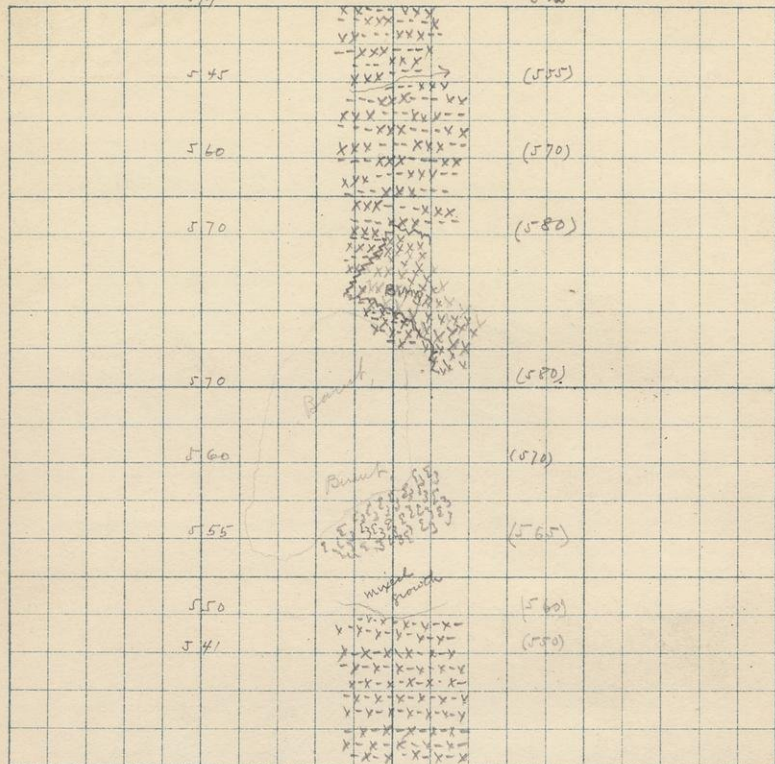 545 (555)
560 (570)
570 (580)
Burnt
570 (580)
Burnt
560 (570)
Burnt
555 (565)
mixed
growth
550 (560)
541 (550)